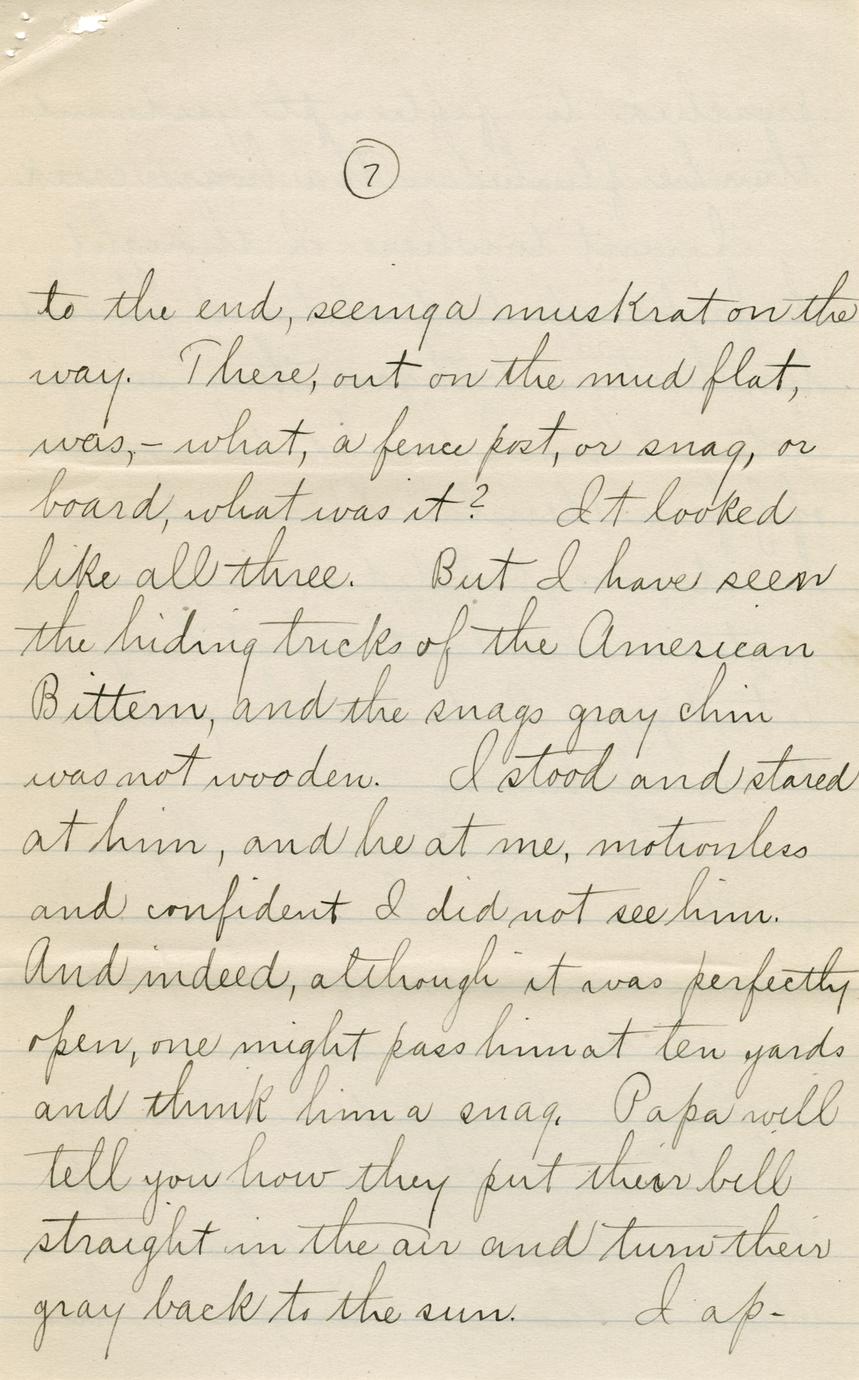 7
to the end, seeing a muskrat on the
way. There, out on the mud flat,
was,- what, a fence post, or snag, or
board, what was it? It looked
like all three. But I have seen
the hiding tricks of the American
Bittern, and the snags gray chin
was not wooden. I stood and stared
at him, and he at me, motionless
and confident I did not see him.
And indeed, although it was perfectly
open, one might pass him at ten yards
and think him a snag. Papa will
tell you how they put their bill
straight in the air and turn their
gray back to the sun. I ap-